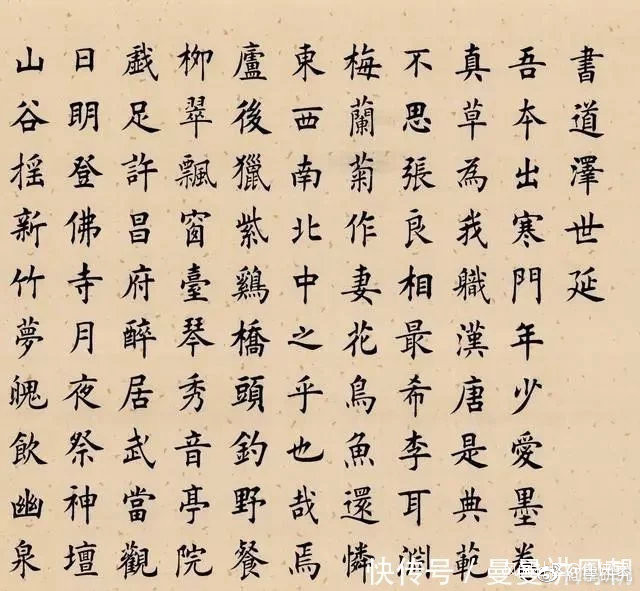 書道澤世延
吾本出寒門年少愛墨卷
真草為我職漢唐是典範
不思張良相最希李耳淵
梅蘭菊作妻花鳥魚還憐
東西南北中之乎也哉焉
廬後獵紫鷄橋頭釣野餐
柳翠飄窗臺琴秀音亭院
戲足許昌府醉居武當觀
日明登佛寺月夜祭神壇
山谷摇新竹夢魄飲幽泉
快传号/曼曼讲周朝